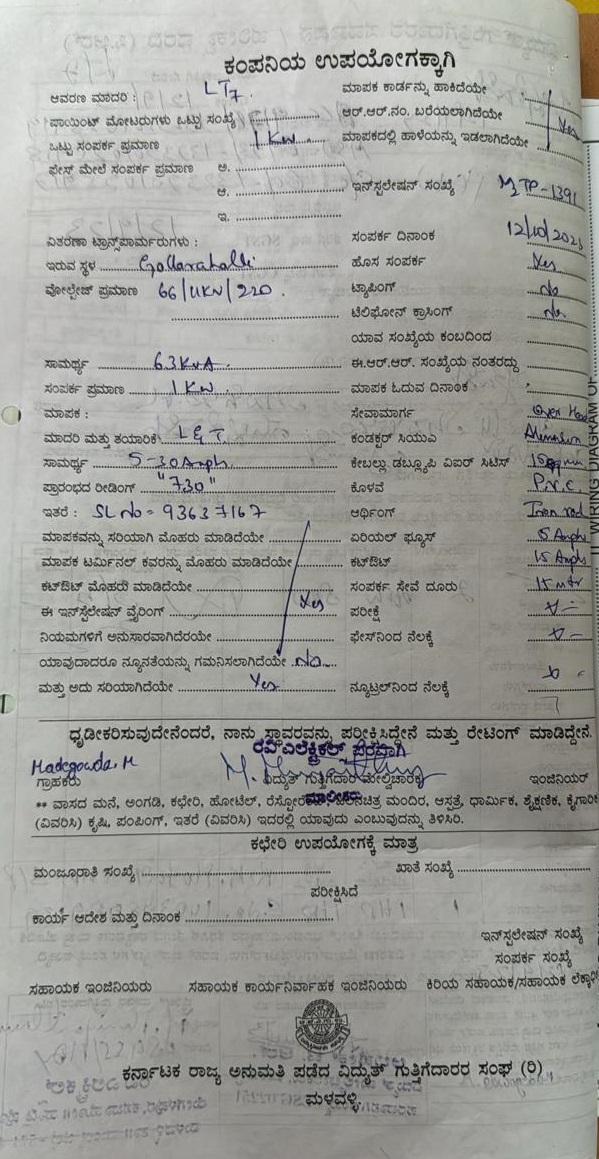 ಕಂಪನಿಯ ಉಪಯೋಗಕ್ಕಾಗಿ
ಆವರಣ ಮಾದರಿ : LT7. ಮಾಪಕ ಕಾರ್ಡನ್ನು ಹಾಕಿದೆಯೇ
ಪಾಯಿಂಟ್ ಮೋಟರುಗಳು ಒಟ್ಟು ಸಂಖ್ಯೆ ಆರ್.ಆರ್.ನಂ. ಬರೆಯಲಾಗಿದೆಯೇ Yes
ಒಟ್ಟು ಸಂಪರ್ಕ ಪ್ರಮಾಣ 1 Kw ಮಾಪಕದಲ್ಲಿ ಹಾಳೆಯನ್ನು ಇಡಲಾಗಿದೆಯೇ
ಫೇಸ್ ಮೇಲೆ ಸಂಪರ್ಕ ಪ್ರಮಾಣ ಅ.
ಆ. ಇನ್‌ಸ್ಟಲೇಷನ್ ಸಂಖ್ಯೆ TP-1391
ಇ.
ವಿತರಣಾ ಟ್ರಾನ್ಸ್‌ಪಾರ್ಮರುಗಳು : ಸಂಪರ್ಕ ದಿನಾಂಕ 12/10/2023
ಇರುವ ಸ್ಥಳ Gollarahalli ಹೊಸ ಸಂಪರ್ಕ Yes
ವೋಲ್ಟೇಜ್ ಪ್ರಮಾಣ 66/11KV/220. ಟ್ಯಾಪಿಂಗ್ No
ಟೆಲಿಫೋನ್ ಕ್ರಾಸಿಂಗ್ No
ಯಾವ ಸಂಖ್ಯೆಯ ಕಂಬದಿಂದ
ಸಾಮರ್ಥ್ಯ 63KVA. ಈ.ಆರ್.ಆರ್. ಸಂಖ್ಯೆಯ ನಂತರದ್ದು
ಸಂಪರ್ಕ ಪ್ರಮಾಣ 1 KW. ಮಾಪಕ ಓದುವ ದಿನಾಂಕ
ಮಾಪಕ : ಸೇವಾಮಾರ್ಗ Over Head
ಮಾದರಿ ಮತ್ತು ತಯಾರಿಕೆ L&T. ಕಂಡಕ್ಟರ್ ಸಿಯುಎ
ಸಾಮರ್ಥ್ಯ 5-30Amph. ಕೇಬಲ್ಲು ಡಬ್ಲ್ಯೂಪಿ ವಿಐರ್ ಸಿಟಿಸ್
ಪ್ರಾರಂಭದ ರೀಡಿಂಗ್ "730" ಕೊಳವೆ P.v.c.
ಇತರೆ : SL No = 93637167 ಆರ್ಥಿಂಗ್ Iron rod
ಮಾಪಕವನ್ನು ಸರಿಯಾಗಿ ಮೊಹರು ಮಾಡಿದೆಯೇ ಏರಿಯಲ್ ಫ್ಯೂಸ್ 5 Amph
ಮಾಪಕ ಟರ್ಮಿನಲ್ ಕವರನ್ನು ಮೊಹರು ಮಾಡಿದೆಯೇ ಕಟ್‌ಔಟ್ 15 Amph
ಕಟ್‌ಔಟ್ ಮೊಹರು ಮಾಡಿದೆಯೇ ಸಂಪರ್ಕ ಸೇವೆ ದೂರು 15 mtr
ಈ ಇನ್‌ಸ್ಟೆಲೇಷನ್ ವೈರಿಂಗ್ Yes ಪರೀಕ್ಷೆ
ನಿಯಮಗಳಿಗೆ ಅನುಸಾರವಾಗಿದೆರೆಯೇ ಫೇಸ್‌ನಿಂದ ನೆಲಕ್ಕೆ
ಯಾವುದಾದರೂ ನ್ಯೂನತೆಯನ್ನು ಗಮನಿಸಲಾಗಿದೆಯೇ No
ಮತ್ತು ಅದು ಸರಿಯಾಗಿದೆಯೇ Yes ನ್ಯೂಟ್ರಲ್‌ನಿಂದ ನೆಲಕ್ಕೆ
11. WIRING DIAGRAM OF
ಧೃಡೀಕರಿಸುವುದೇನೆಂದರೆ, ನಾನು ಸ್ಥಾವರವನ್ನು ಪರೀಕ್ಷಿಸಿದ್ದೇನೆ ಮತ್ತು ರೇಟಿಂಗ್ ಮಾಡಿದ್ದೇನೆ.
ರವಿ ಎಲೆಕ್ಟ್ರಿಕಲ್ಸ್ ಪರವಾಗಿ
Madegowda. M
ಗ್ರಾಹಕರು ವಿದ್ಯುತ್ ಗುತ್ತಿಗೆದಾರ ಮೇಲ್ವಿಚಾರಕ ಇಂಜಿನಿಯರ್
ಮಾಲೀಕರು
** ವಾಸದ ಮನೆ, ಅಂಗಡಿ, ಕಛೇರಿ, ಹೋಟೆಲ್, ಚಲನಚಿತ್ರ ಮಂದಿರ, ಆಸ್ಪತ್ರೆ, ಧಾರ್ಮಿಕ, ಶೈಕ್ಷಣಿಕ, ಕೈಗಾರಿಕೆ
(ವಿವರಿಸಿ) ಕೃಷಿ, ಪಂಪಿಂಗ್, ಇತರೆ (ವಿವರಿಸಿ) ಇದರಲ್ಲಿ ಯಾವುದು ಎಂಬುವುದನ್ನು ತಿಳಿಸಿರಿ.
ಕಛೇರಿ ಉಪಯೋಗಕ್ಕೆ ಮಾತ್ರ
ಮಂಜೂರಾತಿ ಸಂಖ್ಯೆ ಖಾತೆ ಸಂಖ್ಯೆ
ಪರೀಕ್ಷಿಸಿದೆ
ಕಾರ್ಯ ಆದೇಶ ಮತ್ತು ದಿನಾಂಕ
ಇನ್‌ಸ್ಟಲೇಷನ್ ಸಂಖ್ಯೆ
ಸಂಪರ್ಕ ಸಂಖ್ಯೆ
ಸಹಾಯಕ ಇಂಜಿನಿಯರು ಸಹಾಯಕ ಕಾರ್ಯನಿರ್ವಾಹಕ ಇಂಜಿನಿಯರು ಕಿರಿಯ ಸಹಾಯಕ/ಸಹಾಯಕ
ಕರ್ನಾಟಕ ರಾಜ್ಯ ಅನುಮತಿ ಪಡೆದ ವಿದ್ಯುತ್ ಗುತ್ತಿಗೆದಾರರ ಸಂಘ (ರಿ)
ಮಳವಳ್ಳಿ.